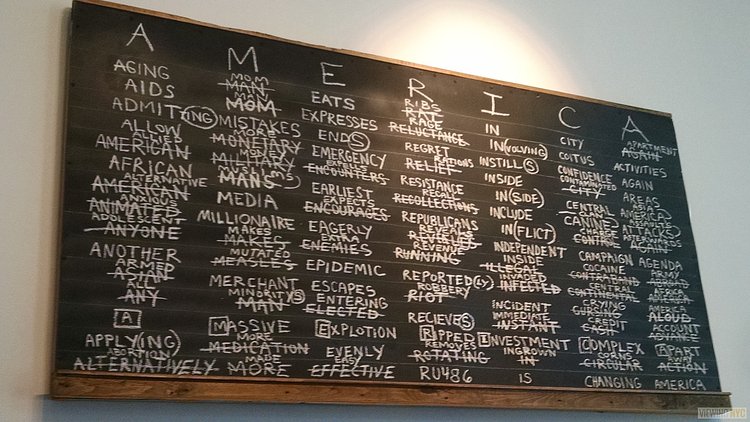 A M E R I C A
MOM RIBS APARTMENT
AGING MAN EATS RAT IN CITY AGAIN
MAN RAGE
AIDS MOM EXPRESSES RELUCTANCE IN(VOLVING) COITUS ACTIVITIES
ADMIT(ING) MISTAKES END(S) REGRET INSTILL(S) CONFIDENCE AGAIN
MORE RATIONS CONTAMINATED
ALLOW MONETARY EMERGENCY RELIEF INSIDE CITY AREAS
ALLIED ASIA
AMERICAN MILITARY ENCOUNTERS RESISTANCE IN(SIDE) CENTRAL AMERICA
MUSLIMS RECALL
AFRICAN MANS EARLIEST RECOLLECTIONS INCLUDE CANINES ATTACK(S)
ALTERNATIVE EXPECTS AFTERWARDS
AMERICAN MEDIA ENCOURAGES REPUBLICANS IN(FLICT) CONTROL ACTION
ANXIOUS REVEALS
ANIMATED MILLIONAIRE EAGERLY REVERSES INDEPENDENT CAMPAIGN AGENDA
ADOLESCENT MAKES EXTRA INSIDE COCAINE ARMY
ANYONE MAKES ENEMIES RUNNING ILLEGAL CONTRABAND ABROAD
MUTATED INVADED CENTRAL AMERICA
ANOTHER MEASLES EPIDEMIC REPORTED(LY) INFESTED CONTINENTAL AMERICA
ARMED ROBBERY CRYING
ASIAN MERCHANT ESCAPES RIOT INCIDENT CURSING ALOUD
ALL MINORITY(S) ENTERING IMMEDIATE CREDIT ACCOUNT
ANY MAN ELECTED RECIEVE(S) INSTANT CASH ADVANCE
A MASSIVE EXPLOTION RIPPED INVESTMENT COMPLEX APART
MORE REMOVES INGROWN CORNS
APPLY(ING) MEDICATION EVENLY ROTATING IN CIRCULAR ACTION
ABORTION MADE EASY
ALTERNATIVELY MORE EFFECTIVE RU486 IS CHANGING AMERICA
VIEWING NYC